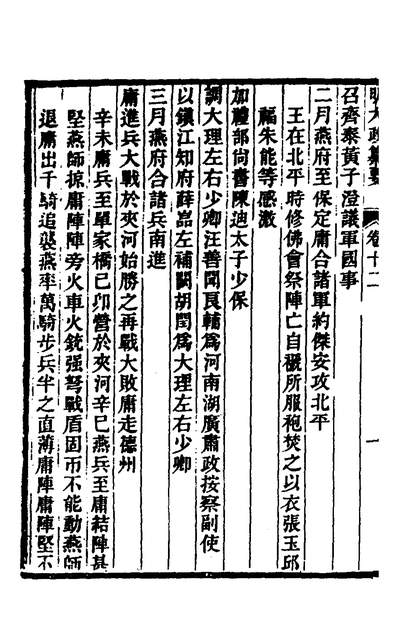 明大政纂要 卷十二 一
召齊泰黃子澄議軍國事
二月燕府至保定庸合諸軍約傑安攻北平
王在北平時修佛會祭陣亡自褫所服袍焚之以衣張玉邱
福朱能等感激
加禮部尙書陳迪太子少保
調大理左右少卿汪善聞良輔爲河南湖廣肅政按察副使
以鎭江知府薛嵓左補闕胡閏爲大理左右少卿
三月燕府合諸兵南進
庸進兵大戰於夾河始勝之再戰大敗庸走德州
辛未庸兵至單家橋已卯營於夾河辛巳燕兵至庸結陣甚
堅燕師掠庸陣陣旁火車火銃强弩戰盾固帀不能動燕師
退庸出千騎追襲燕率萬騎步兵半之直薄庸陣庸陣堅不